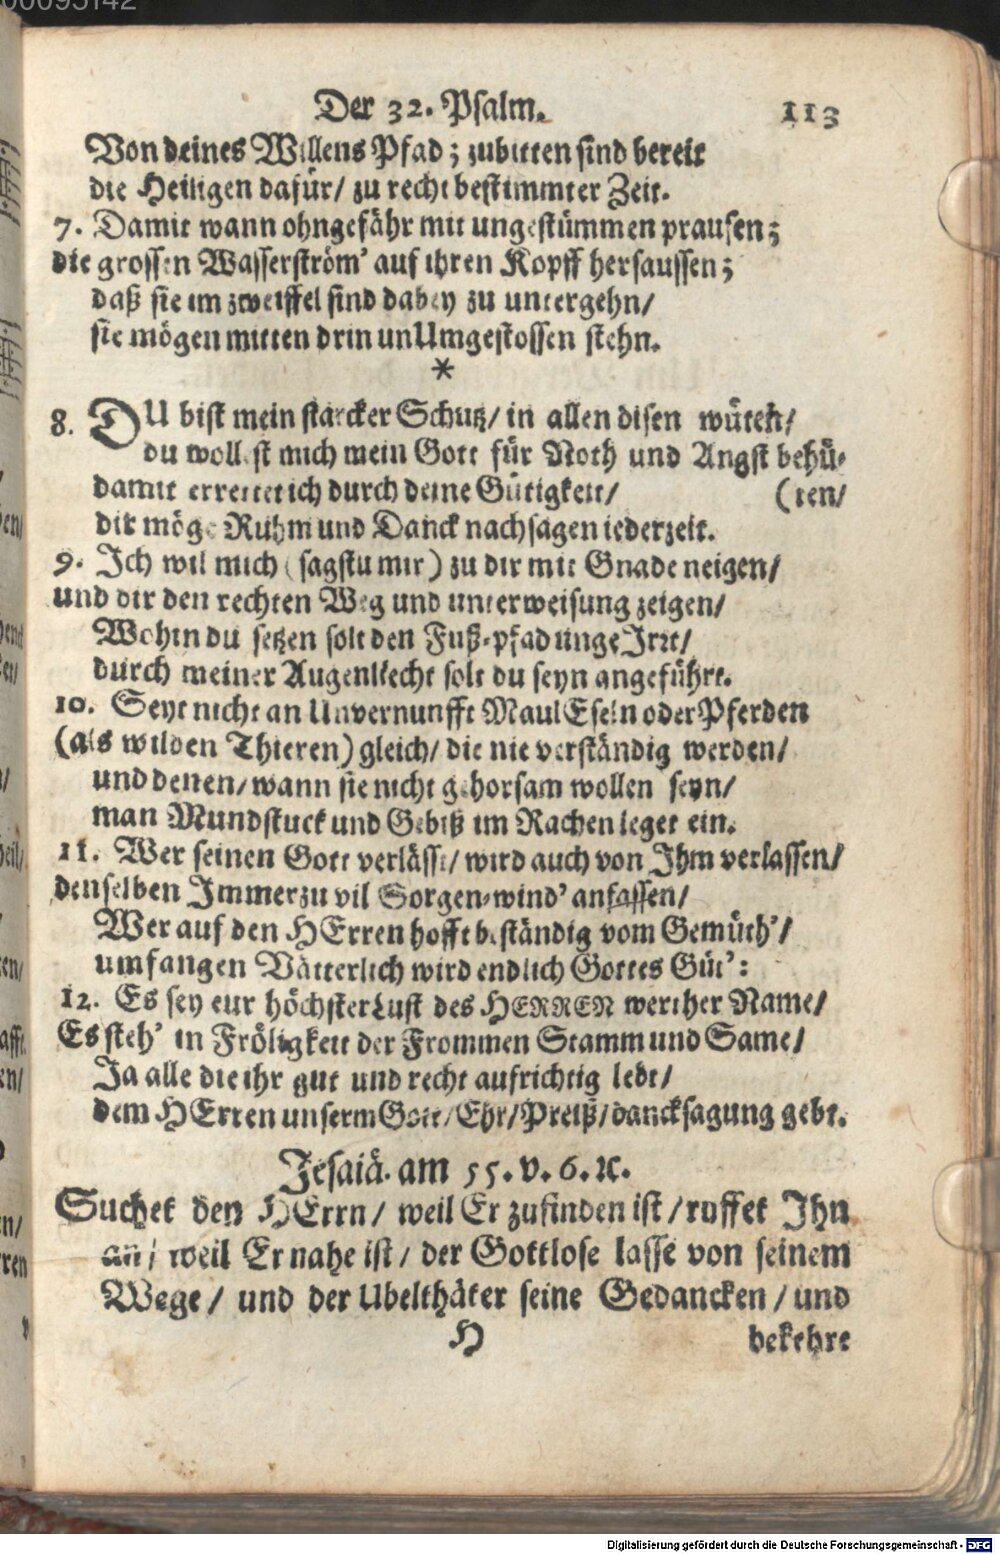 Der 32. Psalm. 113
Von deines Willens Pfad; zubitten sind bereit
die Heiligen dafür/ zu recht bestimmter Zeit.
7. Damit wann ohngefähr mit ungestümmen prausen;
die grossen Wasserström' auf ihren Kopff hersaussen;
daß sie im zweiffel sind dabey zu untergehn/
sie mögen mitten drin unUmgestossen stehn.
*
8. DU bist mein starcker Schutz/ in allen disen wüten/
du wollest mich mein Gott für Noth und Angst behü-
damit errettet ich durch deine Gütigkeit/ (ten/
dir möge Ruhm und Danck nachsagen iederzeit.
9. Ich wil mich (sagstu mir) zu dir mit Gnade neigen/
und dir den rechten Weg und unterweisung zeigen/
Wohin du setzen solt den Fuß-pfad ungeIrrt/
durch meiner Augen liecht solt du seyn angeführt.
10. Seyt nicht an Unvernunfft MaulEseln oder Pferden
(als wilden Thieren) gleich/ die nie verständig werden/
und denen/ wann sie nicht gehorsam wollen seyn/
man Mundstuck und Gebiß im Rachen leget ein.
11. Wer seinen Gott verlässt/ wird auch von Ihm verlassen/
denselben Immerzu vil Sorgen-wind' anfassen/
Wer auf den HErren hofft beständig vom Gemüth'/
umfangen Vätterlich wird endlich Gottes Güt':
12. Es sey eur höchster Lust des HERREN werther Name/
Es steh' in Fröligkeit der Frommen Stamm und Same/
Ja alle die ihr gut und recht aufrichtig lebt/
dem HErren unserm Gott/ Ehr/ Preiß/ dancksagung gebt.
Jesaiä. am 55. v. 6. ꝛc.
Suchet den HErrn/ weil Er zufinden ist/ ruffet Ihn
an/ weil Er nahe ist/ der Gottlose lasse von seinem
Wege/ und der Ubelthäter seine Gedancken/ und
H bekehre
Digitalisierung gefördert durch die Deutsche Forschungsgemeinschaft - DFG